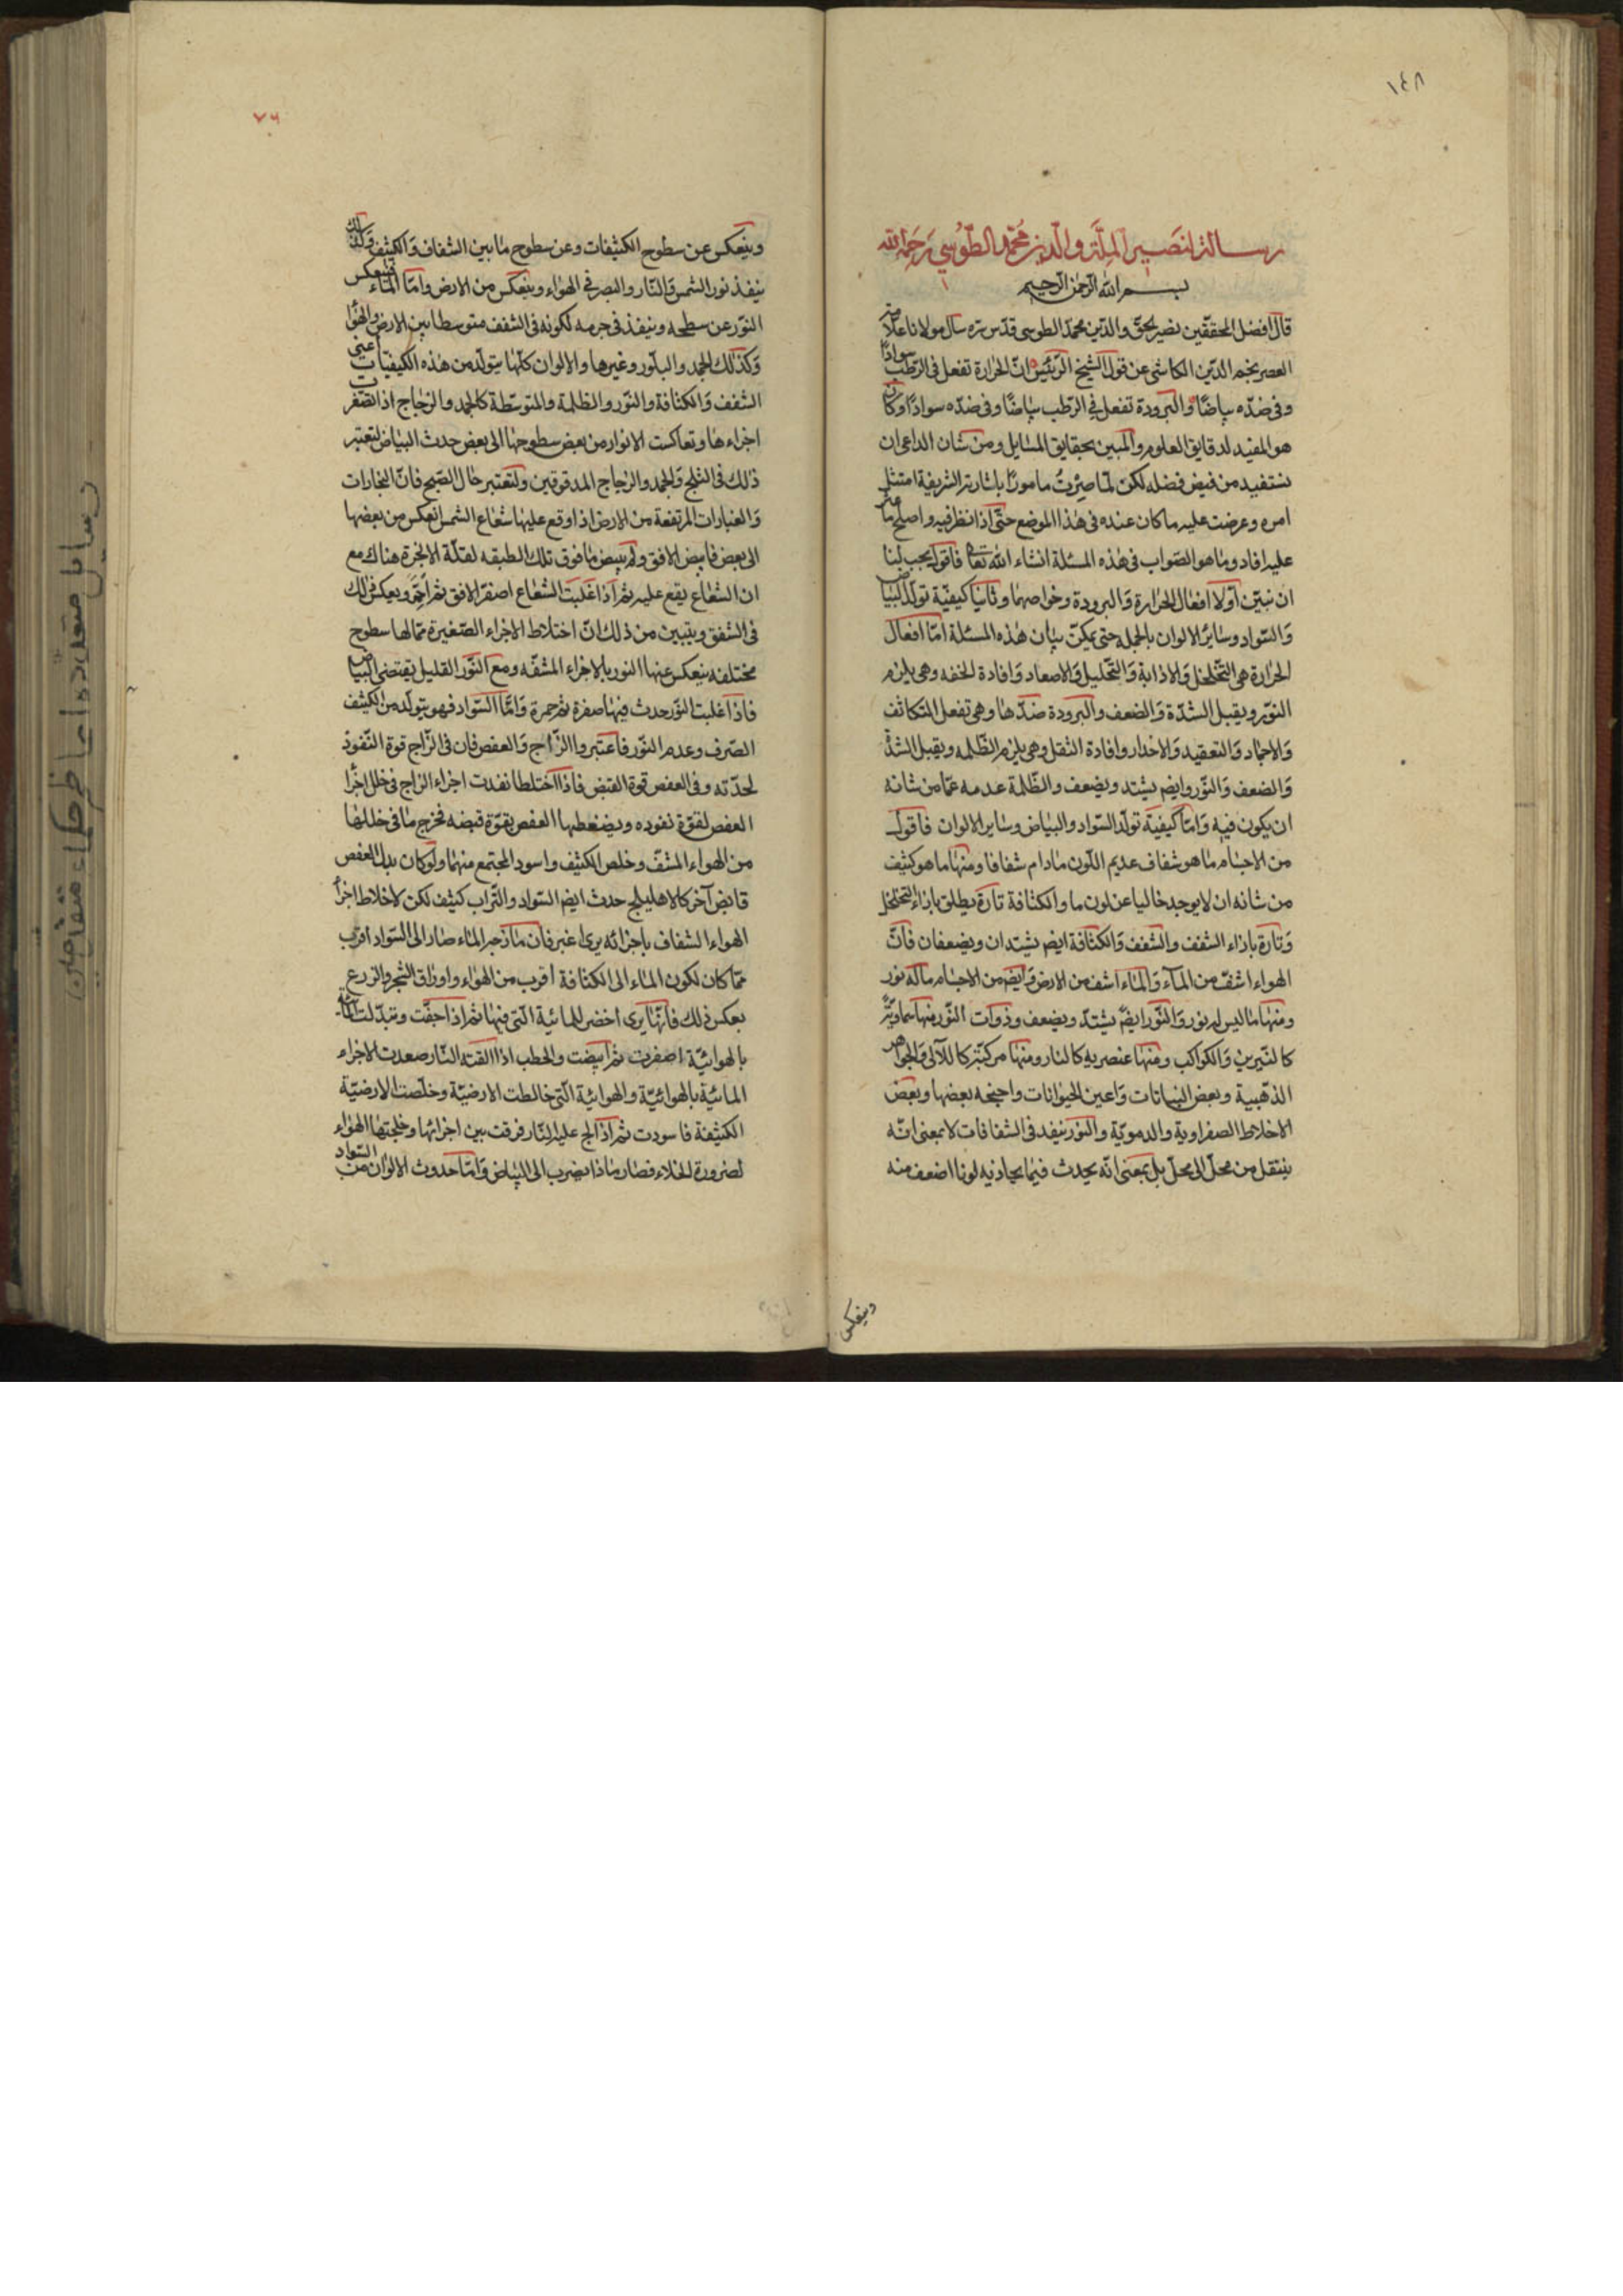 ١٤٨
رسالة لنصير الملة والدين محمد الطوسي رحمه الله
بسم الله الرحمن الرحيم
قال افضل المحققين نصير الحق والدين محمد الطوسى قدس سره سال مولانا علامة
العصر نجم الدين الكاشى عن قول الشيخ الرئيس ان الحرارة تفعل فى الرطب سوادا
وفى ضده بياضا والبرودة تفعل فى الرطب بياضا وفى ضده سوادا وكان
هو المفيد لدقايق العلوم والمبين بحقايق المسايل ومن شان الداعى ان
نستفيد من فيض فضله لكن لما صرت مامورا باشارته الشريفة امتثل
امره وعرضت عليه ما كان عنده فى هذا الموضع حتى اذا نظر فيه واصلح ما عثر
عليه افاد وما هو الصواب فى هذه المسئلة انشاء الله تعا فاقول يجب لنا
ان نبين اولا افعال الحرارة والبرودة وخواصهما وثانيا كيفية تولد البياض
والسواد وساير الالوان بالجمله حتى يمكن بيان هذه المسئلة اما افعال
الحرارة هى التخلخل والاذابة والتحليل والاصعاد وافادة الخفه وهى يلزم
النور ويقبل الشدة والضعف والبرودة ضدها وهى تفعل التكاثف
والاجماد والتعقيد والاحدار وافادة الثقل وهى يلزم الظلمه ويقبل الشدة
والضعف والنور وايضم يشتد ويضعف والظلمة عدمه عما من شانه
ان يكون فيه واما كيفية تولد السواد والبياض وساير الالوان فاقول
من الاجسام ما هو شفاف عديم اللون مادام شفافا ومنها ما هو كثيف
من شانه ان لا يوجد خاليا عن لون ما والكثافة تارة يطلق بازاء التخلخل
وتارة بازاء الشفف والشفف والكثافة ايضم يشتدان ويضعفان فان
الهواء اشف من الماء والماء اشف من الارض وايضم من الاجسام ما له نور
ومنها ما ليس له نور والنور ايضم يشتد ويضعف وذوات النور منها سماوية
كالنيرين والكواكب ومنها عنصريه كالنار ومنها مركبة كاللآلى والجواهر
الذهبية وبعض النباتات واعين الحيوانات واجنحه بعضها وبعض
الاخلاط الصفراوية والدموية والنور ينفد فى الشفافات لا بمعنى انه
ينتقل من محل الى محل بل بمعنى انه يحدث فيما يحاذيه لونا اضعف منه
وينعكس
٧٦
وينعكس عن سطوح الكثيفات وعن سطوح ما بين الشفاف والكثيف ولذلك
ينفذ نور الشمس والنار والبصر فى الهواء وينعكس من الارض واما الماء فينعكس
النور عن سطحه وينفذ فى جرمه لكونه فى الشفف متوسطا بين الارض والهوا
وكذلك الجمد والبلور وغيرها والالوان كلها يتولد من هذه الكيفيات اعنى
الشفف والكثافة والنور والظلمة والمتوسطة كالجمد والزجاج اذا تصغرت
اجزاءها وتعاكست الانوار من بعض سطوحها الى بعض حدث البياض لتعتبر
ذلك فى الثلج والجمد والزجاج المدقوقين ولتعتبر حال الصبح فان البخارات
والغبارات المرتفعة من الارض اذا وقع عليها شعاع الشمس انعكس من بعضها
الى بعض فابيض الافق ولم يبيض ما فوق تلك الطبقه لقلة الابخرة هناك مع
ان الشعاع يقع عليه ثم اذا غلبت الشعاع اصفر الافق ثم احمر وبعكس ذلك
فى الشفق ويتبين من ذلك ان اختلاط الاجزاء الصغيرة مما لها سطوح
مختلفه ينعكس عنها النور بالاجزاء المشفه ومع النور القليل يقتضى البياض
فاذا غلبت النور حدث فيها صفرة ثم حمرة واما السواد فهو يتولد من الكثيف
الصرف وعدم النور فاعتبروا الزاج والعفص فان فى الزاج قوة النفوذ
لحدته وفى العفص قوة القبض فاذا اختلطا نفدت اجزاء الزاج فى خلل اجزا
العفص لقوة نفوده ويضغطها العفص بقوة قبضه فخرج ما فى خللها
من الهواء المشف وخلص الكثيف واسود المجتمع منهما ولو كان بدل العفص
قابض آخر كالاهليلج حدث ايضم السواد والتراب كثيف لكن لاختلاط اجزا
الهواء الشفاف باجزائه يرى اغبر فان مازجه الماء صار الى السواد اقرب
مما كان لكون الماء الى الكثافة اقرب من الهواء واوراق الشجر والزرع
بعكس ذلك فانها يرى اخضر للمائية التى فيها ثم اذا جفت وتبدلت المائية
بالهوائية اصفرت ثم ابيضت والحطب اذا القته النار صعدت الاجزاء
المائية بالهوائية والهوائية التى خالطت الارضية وخلصت الارضية
الكثيفة فاسودت ثم اذا الح عليه النار فرقت بين اجزائها وخلجتها الهواء
لضرورة الخلاء فصار رمادا يضرب الى البياض واما حدوث الالوان من السواد
رسايل متعدده اعاظم حكماء متقدمين